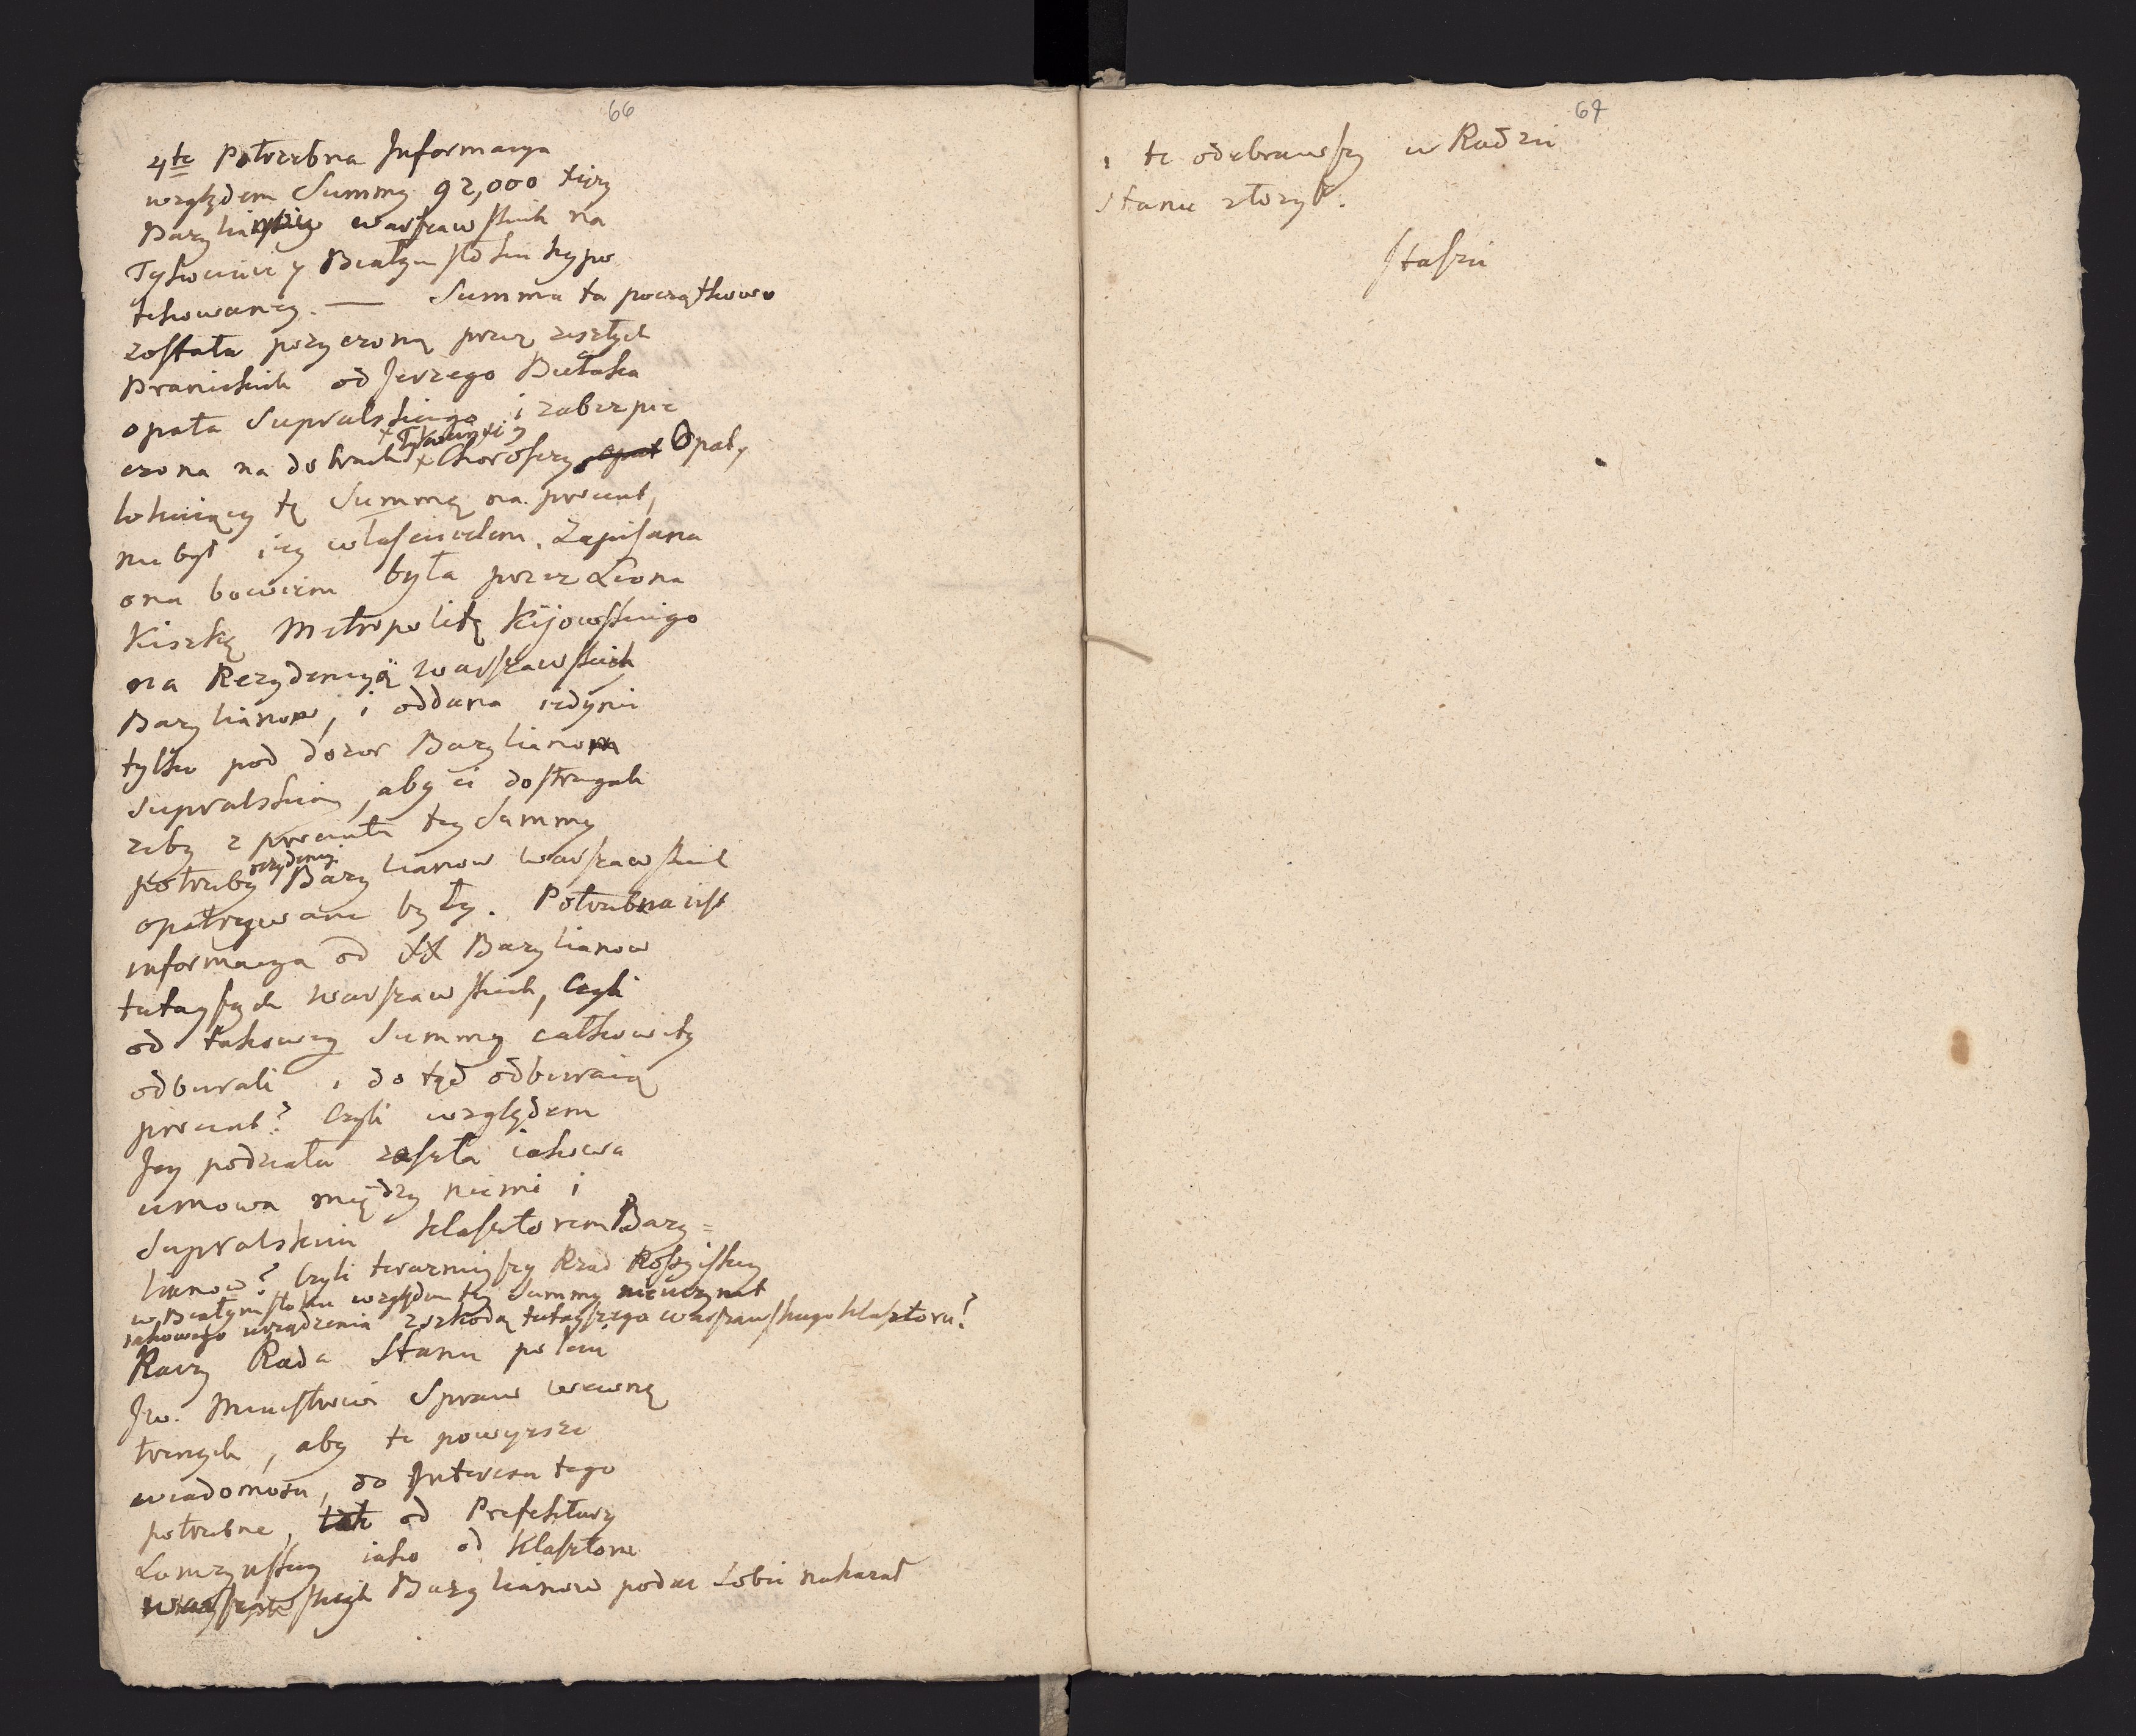 66
4te Potrzebna Informacya
względem Summy 92,000 tłzy
Bazylianow warszawskich na
Tykocinie y Białymstoku hypo
tekowaney. — Summa ta początkowo
została pożyczoną przez zeszłych
Branickich od Jerzego Bułaka
opata Supralskiego i zabezpie
czona na dobrach Choroszczy Opat,
lokuiący tę Summę na procent,
nie był iey właścicielem. Zapisana
ona bowiem była przez Leona
Kiszkę Metropolitę Kijowskiego
na Rezydencyą warszawskich
Bazylianow, i oddana iedynie
tylko pod dozor Bazylianom
Supralskim, aby ci dostrzegali
żeby z procentu tey Summy
potrzeby rezydencyi Bazylianow warszawskich
opatrywane były. Potrzebna iest
informacya od XX Bazylianow
tutayszych warszawskich, Czyli
od takowey Summy całkowity
odbierali i do tąd odbieraią
procent? Czyli względem
Jey podziału zaszła iakowa
umowa między niemi i
Supralskim klasztorem Bazy=
lianow? Czyli teraznieyszy Rząd Rossyiski
w Białymstoku względem tey Summy nieuczynił
iakowego urządzenia z szkodą tutayszego warszawskiego klasztoru?
Raczy Rada Stanu polecić
Jw. Ministrowi Spraw wewnę
trznych, aby te powyższe
wiadomości, do Interesu tego
potrzebne, tak od Prefektury
Łomżyńskiey iako od klasztoru
warszawskich Bazylianow podać sobie nakazał
67
i te odebrawszy w Radzie
Stanu złożył.
Staszic